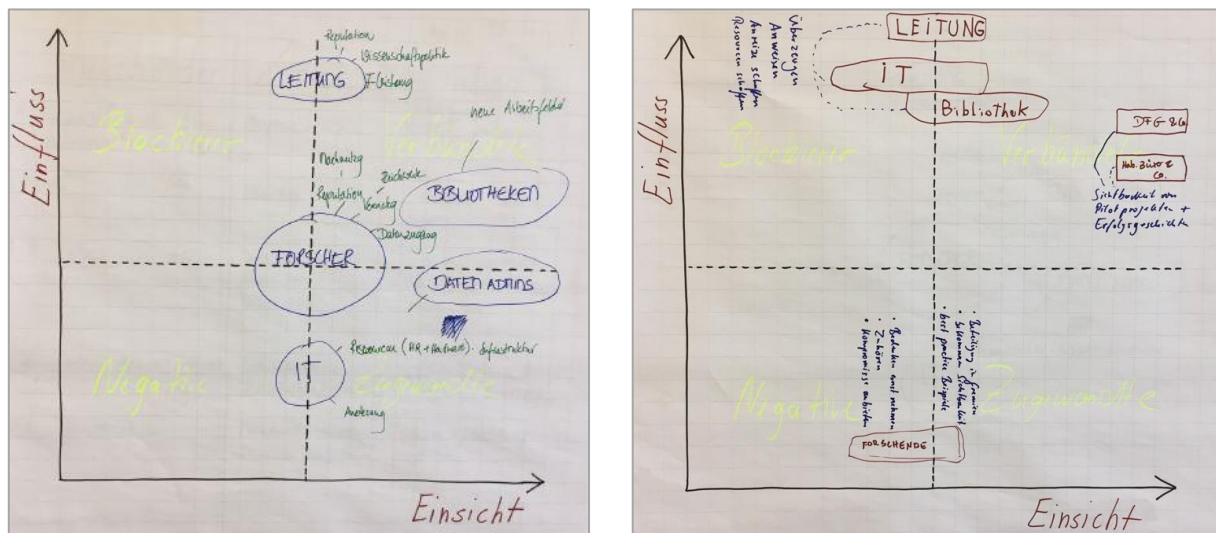 Einfluss
Reputation
Wissenschaftspolitik
LEITUNG
neue Arbeitsfelder
Blockierer
Verbündete
Nachnutzg
Reputation
BIBLIOTHEKEN
Datenzugang
FORSCHER
DATEN ADMINS
Ressourcen (HR + Hardware) · Infrastruktur
IT
Negative
Zugewandte
Einsicht
Einfluss
Überzeugen
Anweisen
Anreize schaffen
Resourcen schaffen
LEITUNG
IT
Bibliothek
DFG & Co.
Blockierer
Verbündete
Hab. Büro &
Co.
Sichtbarkeit von
Pilotprojekten +
Erfolgsgeschichten
• Beteiligung in Gremien
• bekommen Sichtbarkeit
• best practice Beispiele
• Bedenken ernst nehmen
• Zuhören
• Kompromisse anbieten
Negative
Zugewandte
FORSCHENDE
Einsicht